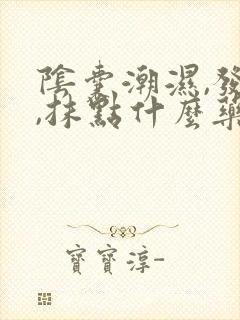 陰囊潮濕,發
,抹點什麼藥
寶寶淳-